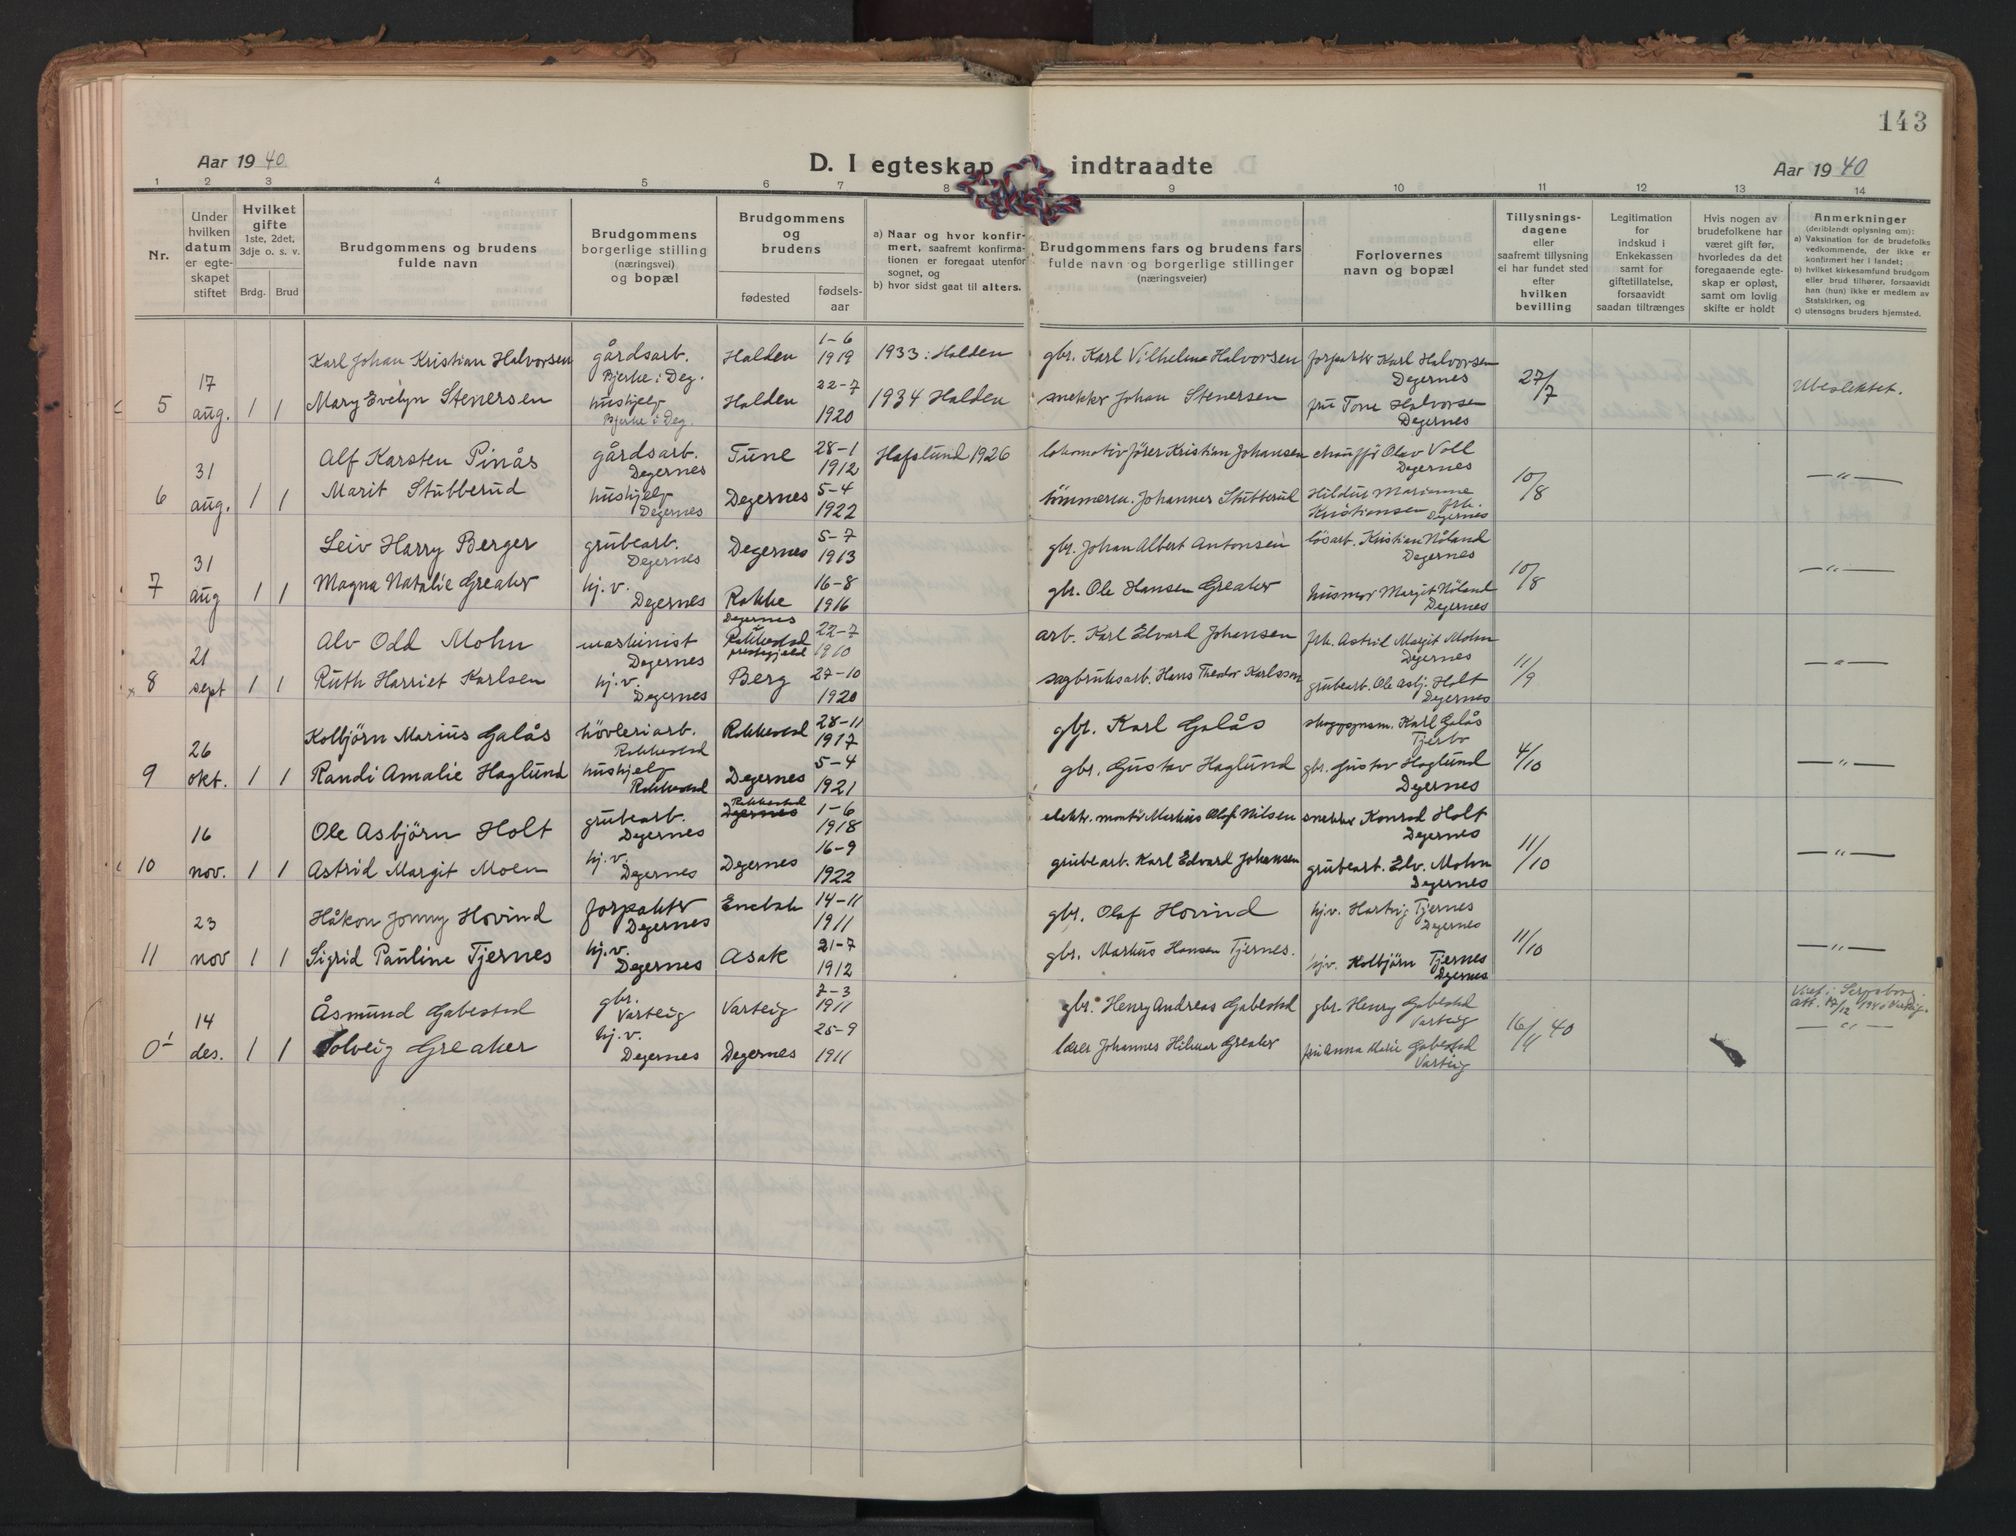 143
Aar 1940
D. I egteskap indtraadte
Aar 1940
1 2 3 4 5 6 7 8 9 10 11 12 13 14
Nr.
Under
hvilken
datum
er egte-
skapet
stiftet
Hvilket
gifte
1ste, 2det,
3dje o. s. v.
Brdg. Brud
Brudgommens og brudens
fulde navn
Brudgommens
borgerlige stilling
(næringsvei)
og bopæl
Brudgommens
og
brudens
fødested
fødsels-
aar
a) Naar og hvor konfir-
mert, saafremt konfirma-
tionen er foregaat utenfor
sognet, og
b) hvor sidst gaat til alters.
Brudgommens fars og brudens fars
fulde navn og borgerlige stillinger
(næringsveier)
Forlovernes
navn og bopæl
Tillysnings-
dagene
eller
saafremt tillysning
ei har fundet sted
efter
hvilken
bevilling
Legitimation
for
indskud i
Enkekassen
samt for
giftetillatelse,
forsaavidt
saadan tiltrænges
Hvis nogen av
brudefolkene har
været gift før,
hvorledes da det
foregaaende egte-
skap er opløst,
samt om lovlig
skifte er holdt
Anmerkninger
(deriblandt oplysning om):
a) Vaksination for de brudefolks
vedkommende, der ikke er
konfirmert her i landet;
b) hvilket kirkesamfund brudgom
eller brud tilhører, forsaavidt
han (hun) ikke er medlem av
Statskirken, og
c) utensogns bruders hjemsted.
5 17 aug. 1 1
Karl Johan Kristian Halvorsen gårdsarb. Bjerke i Deg. Halden 1-6 1919 1933: Halden gbr. Karl Vilhelm Halvorsen forpakter Karl Halvorsen Degernes 27/7 Ubeslektet.
Mary Evelyn Stenersen hushjelp Bjerke i Deg. Halden 22-7 1920 1934 Halden snekker Johan Stenersen fru Tone Halvorsen Degernes
6 31 aug. 1 1
Alf Karsten Pinås gårdsarb. Degernes Tune 28-1 1912 Hafslund 1926 lokomotivfører Kristian Johansen chauffør Olav Voll Degernes 10/8 — " —
Marit Stubberud hushjelp Degernes Degernes 5-4 1922 tömmerm. Johannes Stubberud Hildur Marianne Kristiansen frk. Degernes
7 31 aug 1 1
Leiv Harry Berger grubearb. Degernes Degernes 5-7 1913 gbr. Johan Albert Antonsen løsarb. Kristian Nöland Degernes 10/8 — " —
Magna Natalie Greaker hj.v. Degernes Rakke 16-8 1916 gbr. Ole Hansen Greaker husmor Margit Nöland Degernes
8 21 sept 1 1
Alv Odd Mohn maskinist Degernes Degernes Rakkestad prestegjeld 22-7 1910 arb. Karl Edvard Johansen frk. Astrid Margit Mohn Degernes 11/9 — " —
Ruth Harriet Karlsen hj.v. Degernes Berg 27-10 1920 sagbruksarb. Hans Theodor Karlsson grubearb. Ole Asbj. Holt Degernes
9 26 okt. 1 1
Kolbjörn Marius Galås hövleriarb. Rakkestad Rakkestad 28-11 1917 gbr. Karl Galås Karl Galås 4/10 — " —
Randi Amalie Haglund hushjelp Rakkestad Degernes 5-4 1921 gbr. Gustav Haglund gbr. Gustav Haglund Degernes
10 16 nov. 1 1
Ole Asbjörn Holt grubearb. Degernes Rakkestad Degernes 1-6 1918 elektr. montör Markus Olof Nilsen snekker Konrad Holt Degernes 11/10 — " —
Astrid Margit Moen hj.v. Degernes Degernes 16-9 1922 grubearb. Karl Edvard Johansen grubearb. Edv. Mohn Degernes
11 23 nov 1 1
Håkon Jonny Hovind forpakter Degernes Enebak 14-11 1911 gbr. Olaf Hovind hjv. Hartvig Tjernes Degernes 11/10 — " —
Sigrid Pauline Tjernes hj.v. Degernes Asak 21-7 1912 gbr. Markus Hansen Tjernes. hjv. Kolbjörn Tjernes Degernes
0 1 14 des. 1 1
Åsmund Gabestad gbr. Varteig Varteig 7-3 1911 gbr. Henry Andreas Gabestad gbr. Henry Gabestad Varteig 16/11 40 Viet i Sarpsborg. Att. 17/12 1940 Varteig. — " —
Solveig Greaker hj.v. Degernes Degernes 25-9 1911 lærer Johannes Hilmar Greaker fru Anna Marie Gabestad Varteig